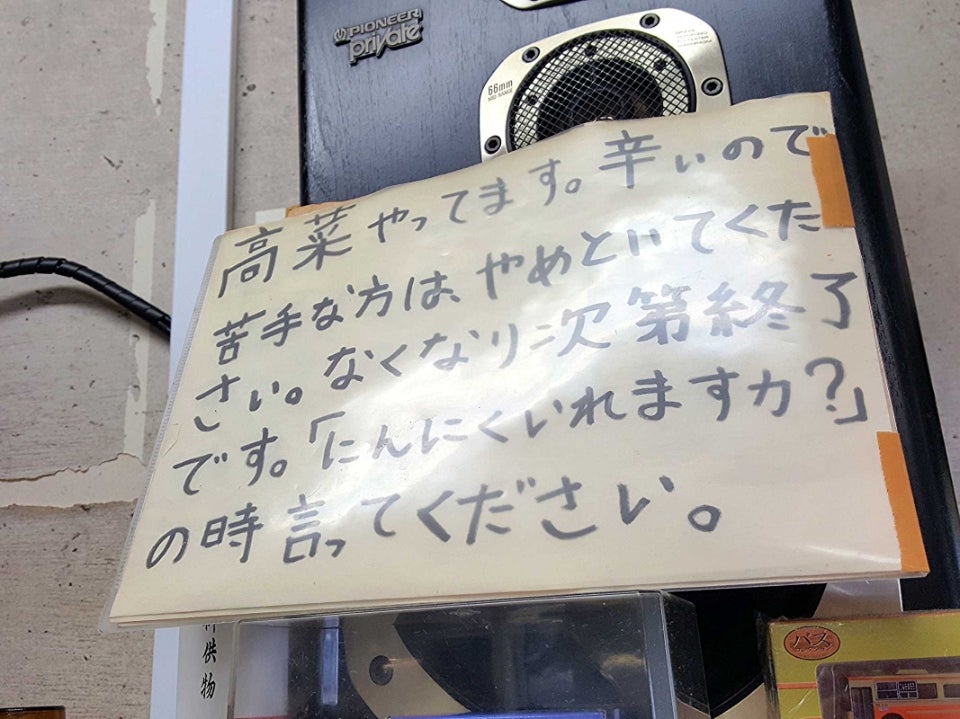 PIONEER
private
66mm
MID RANGE
高菜やってます。辛いので
苦手な方は、やめといてくだ
さい。なくなり次第終了
です。「にんにくいれますか?」
の時言ってください。
供物
バス